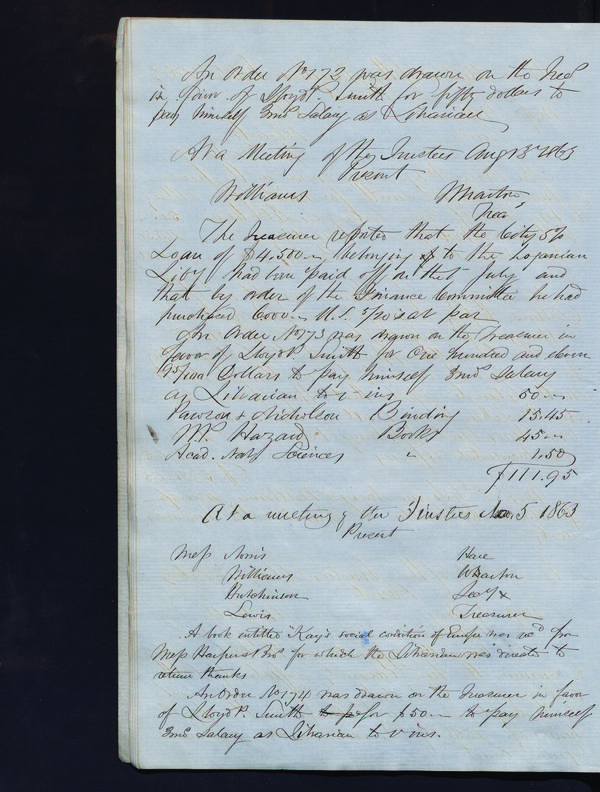 An Order No 172 was drawn on the Treas
in favor of Lloyd P. Smith for fifty dollars to
pay himself 3 mos Salary as Librarian
At a Meeting of the Trustees Aug 13 1863
Present
Williams Wharton
Treas
The Treasurer reported that the City 5%
Loan of $4.500 belonging to the Loganian
Liby had been paid off on the 1st July and
that by order of the Finance Committee he had
purchased 6000 U.S. 5/20s at par
An Order No 173 was drawn on the Treasurer in
favor of Lloyd P. Smith for One hundred and eleven
95/100 Dollars to pay himself 3 mos Salary
as Librarian to 1 ins 50
Pawson & Nicholson Binding 15.45
Hazard Books 45
Acad. Nat Sciences " 1.50
$111.95
At a meeting of the Trustees Nov. 5 1863
Present
Mess Norris Hare
Williams Wharton
Hutchinson Secy &
Lewis Treasurer
A book entitled "Kay's social condition of Europe was recd from
Mess Harper & Bros for which the Librarian was directed to
return thanks
An Order No 174 was drawn on the Treasurer in favor
of Lloyd P. Smith for $50 to pay himself
3 mos Salary as Librarian to 1 ins.